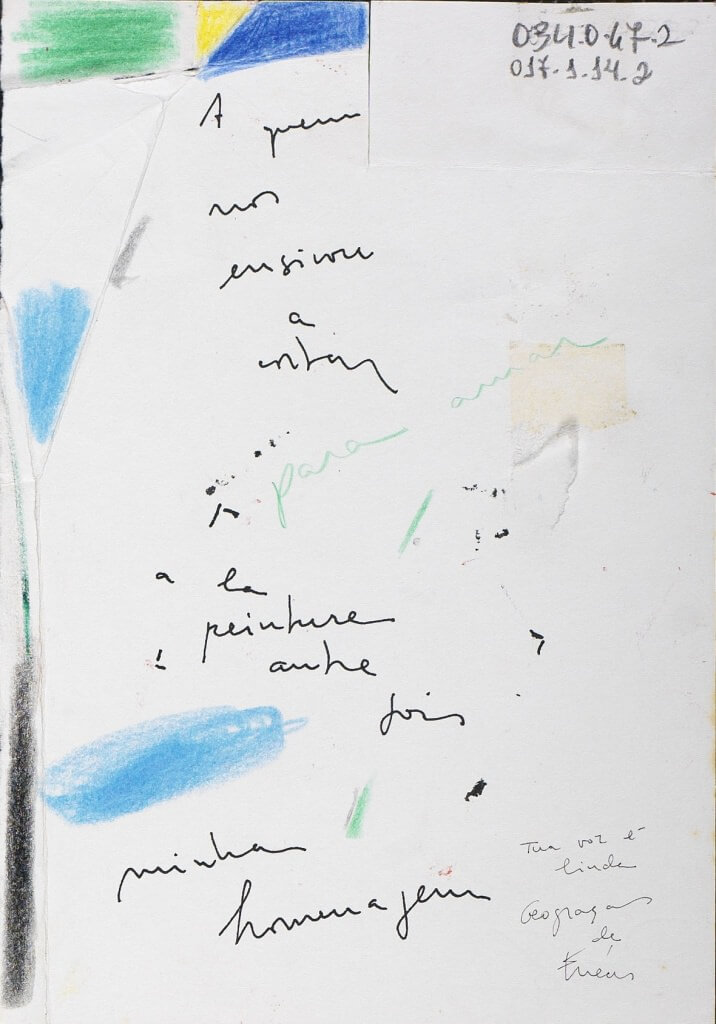 034.0.47.2
017.1.14.2
A quem
nos
ensinou
a
para amar
a la
peinture
autre
fois
minha
homenagem
Tua voz é
linda
de